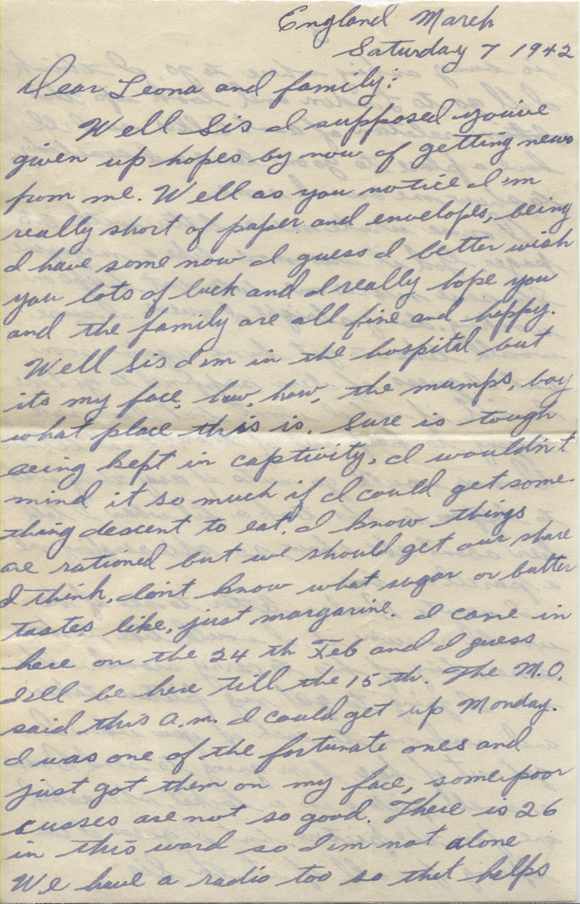 England March
Saturday 7 1942
Dear Leona and family:
Well Sis I supposed you've
given up hopes by now of getting news
from me. Well as you notice I'm
really short of paper and envelopes, being
I have some now I guess I better wish
you lots of luck and I really hope you
and the family are all fine and happy.
Well Sis I'm in the hospital but
its my face, haw, haw, the mumps, boy
what place this is. Sure is tough
being kept in captivity, I wouldn't
mind it so much if I could get some-
thing descent to eat. I know things
are rationed but we should get our share
I think, don't know what sugar or butter
tastes like, just margarine. I came in
here on the 24 th Feb and I guess
I'll be here till the 15 th. The M.O.
said this a.m. I could get up Monday.
I was one of the fortunate ones and
just got them on my face, some poor
cusses are not so good. There is 26
in this ward so I'm not alone
We have a radio too so that helps